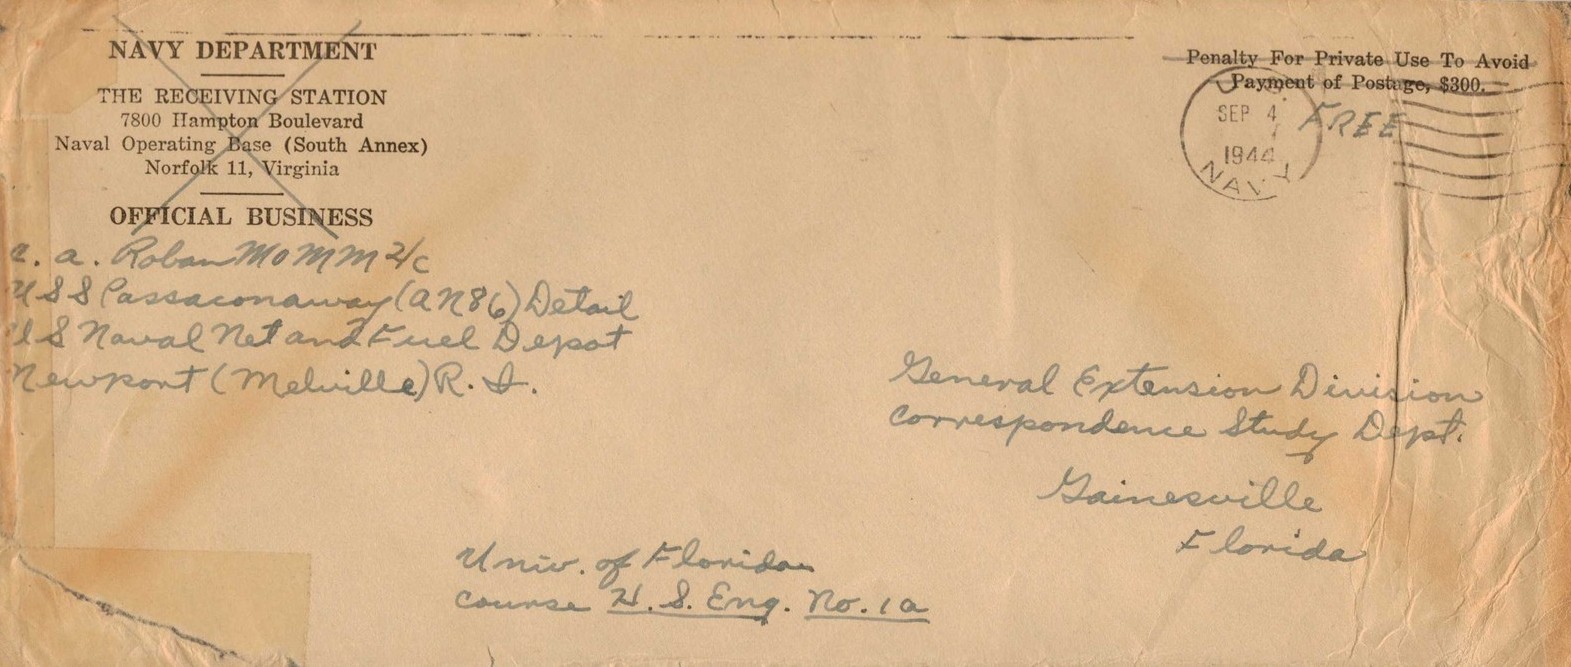 NAVY DEPARTMENT
THE RECEIVING STATION
7800 Hampton Boulevard
Naval Operating Base (South Annex)
Norfolk 11, Virginia
OFFICIAL BUSINESS
Penalty For Private Use To Avoid
Payment of Postage, $300.
U. S.
SEP 4
1944
NAVY
FREE
a. Roban MoMM 2/c
USS Passaconaway (AN86) Detail
US Naval Net and Fuel Depot
Newport (Melville) R. I.
General Extension Division
Correspondence Study Dept.
Gainesville
Florida
Univ. of Florida
Course H. S. Eng. No. 1a